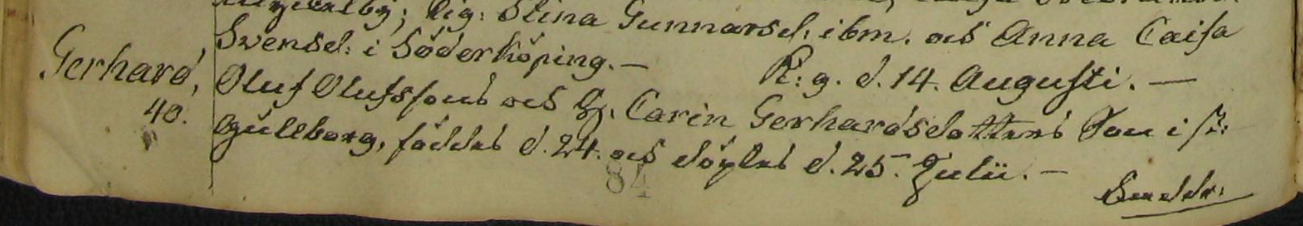 Pig: Stina Gunnarsd. ibm. och Anna Caisa
Svensd: i Söderköping.— K: g. d. 14. Augusti.—
Gerhard, Oluf Olufssons och H. Carin Gerhardsdotters Son i
40. Gullborg, föddes d. 24. och döptes d. 25. Julii.—
84